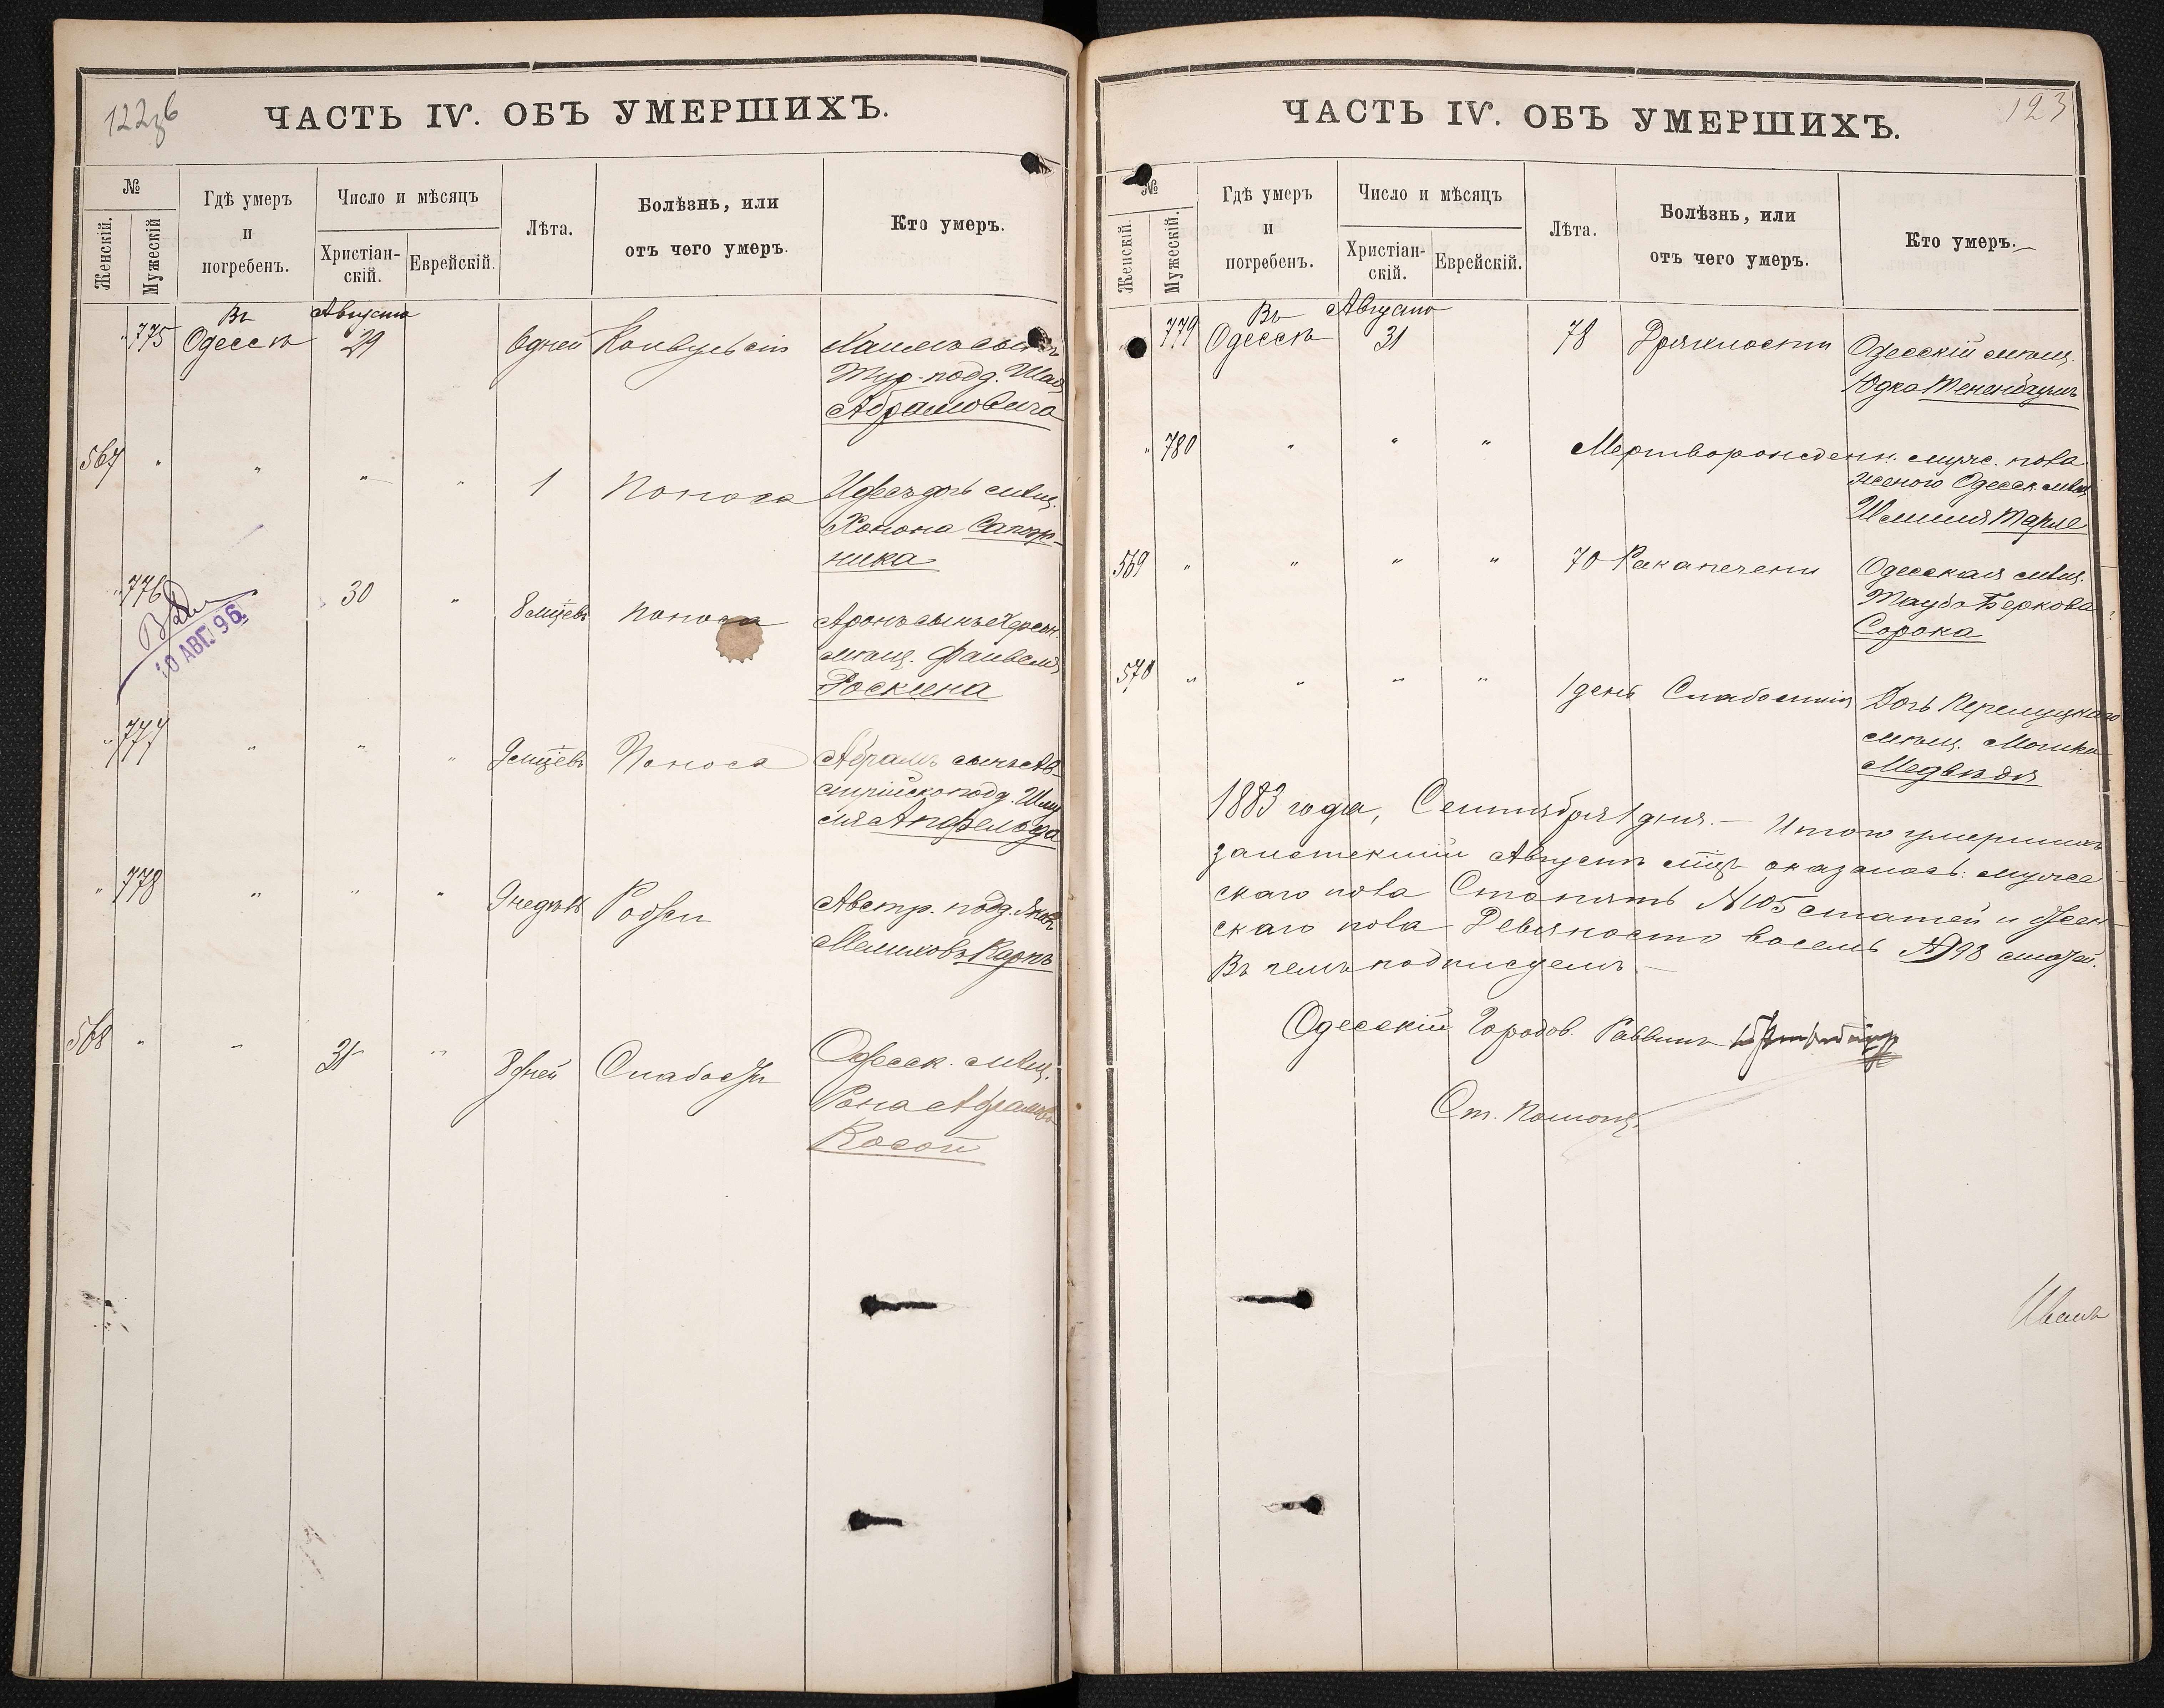 122об
ЧАСТЬ IV. ОБЪ УМЕРШИХЪ.
№
Женскій.
Мужескій
Гдѣ умеръ
и
погребенъ.
Число и мѣсяцъ
Христіан-
скій.
Еврейскій.
Лѣта.
Болѣзнь, или
отъ чего умеръ.
Кто умеръ.
" 775 Въ Одессѣ Августа 29 6 дней Конвульсіи сынъ
Тур. подд.
Абрамовича
567 " " " " 1 Поноса дочь мѣщ.
Хонона Сапож-
ника
" 776 30 " 8 мцѣвъ Поноса Аронъ сынъ Херсон.
мѣщ. Файвеля
Роскина
10 АВГ. 96
" 777 " " " 9 мцѣвъ Поноса Абрамъ сынъ Ав-
стрійско подд. Шму
ля Апфельда
" 778 " " " 9 недѣль Родзи Австр. подд.
Мешиловъ Карпъ
568 " " 31 " 8 дней Слабости Одесск. мѣщ.
Рона Абрамова
Косой
123
ЧАСТЬ IV. ОБЪ УМЕРШИХЪ.
№
Женскій.
Мужескій.
Гдѣ умеръ
и
погребенъ.
Число и мѣсяцъ
Христіан-
скій.
Еврейскій.
Лѣта.
Болѣзнь, или
отъ чего умеръ.
Кто умеръ.
779 Въ Одессѣ Августа 31 78 Дряхлости Одесскій мѣщ.
Юдко Тененбаумъ
" 780 " " " Мертворожденн. муж. пола
женою Одесск. мѣщ.
Шмиля Тарле
569 " " " " 70 Рака печени Одесская мѣщ.
Тауба Беркова
Сорока
570 " " " " 1 день Слабости Дочь
мѣщ. Мошка
Медвѣдя
1883 года, Сентября 1 дня. — Итого умершихъ
за истекшій Августъ мцъ оказалось: муже-
скаго пола Сто пять №105 статей и жен-
скаго пола Девяносто восемь №98 статей.
Въ чемъ подписуемъ —
Одесскій Городов. Раввинъ
Ст. Помощ.
Иванъ